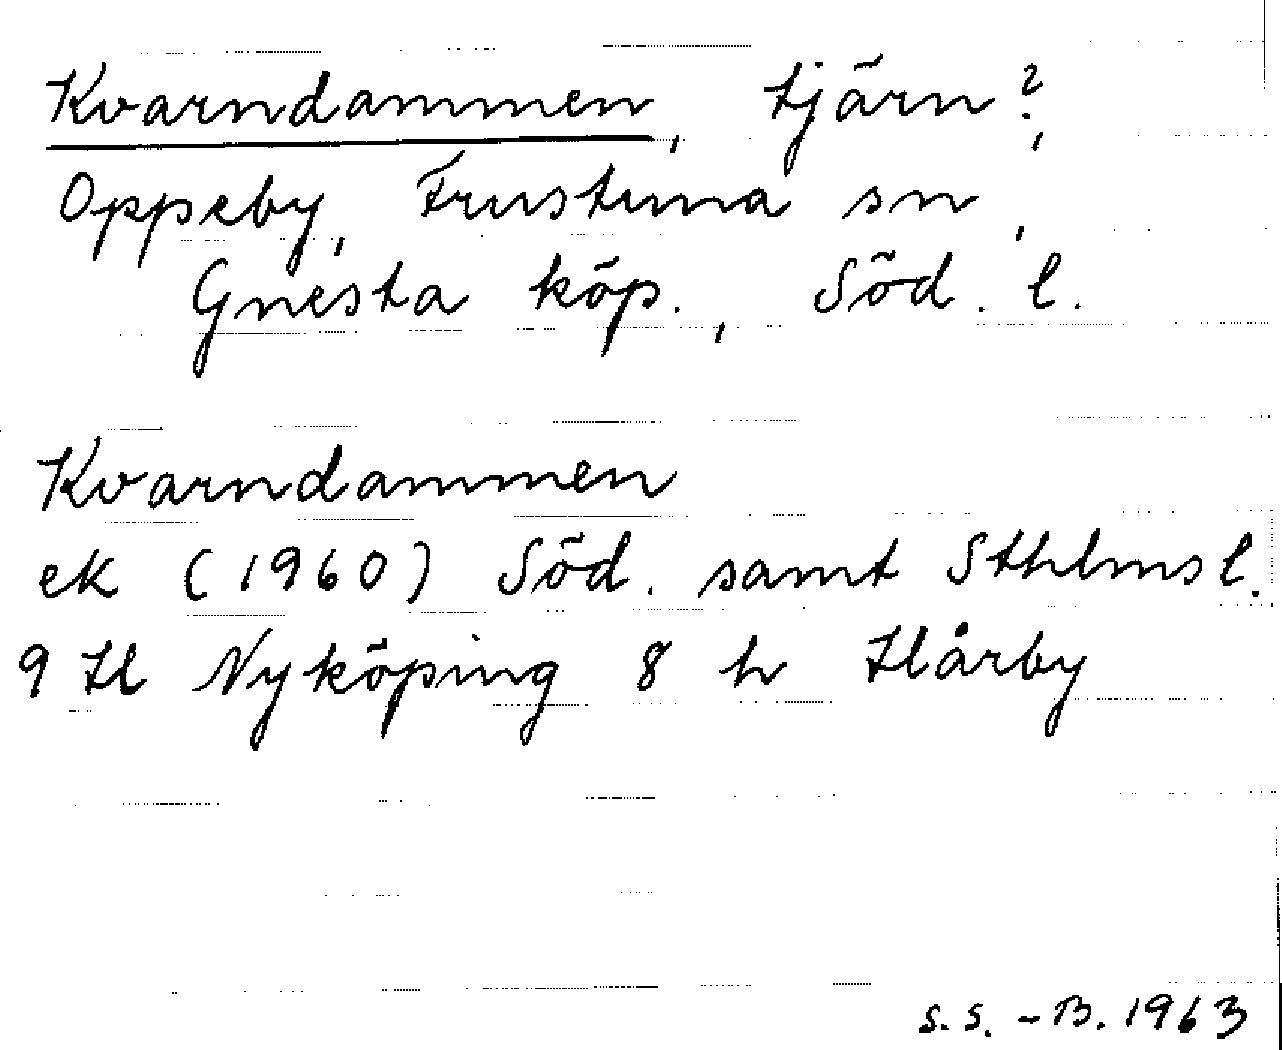 Kvarndammen, tjärn?,
Oppeby, Frustuna sn,
Gnesta köp., Söd. l.
Kvarndammen
ek (1960) Söd. samt Sthlms l.
9 Hl Nyköping 8 h Hårby
S. S. - B. 1963